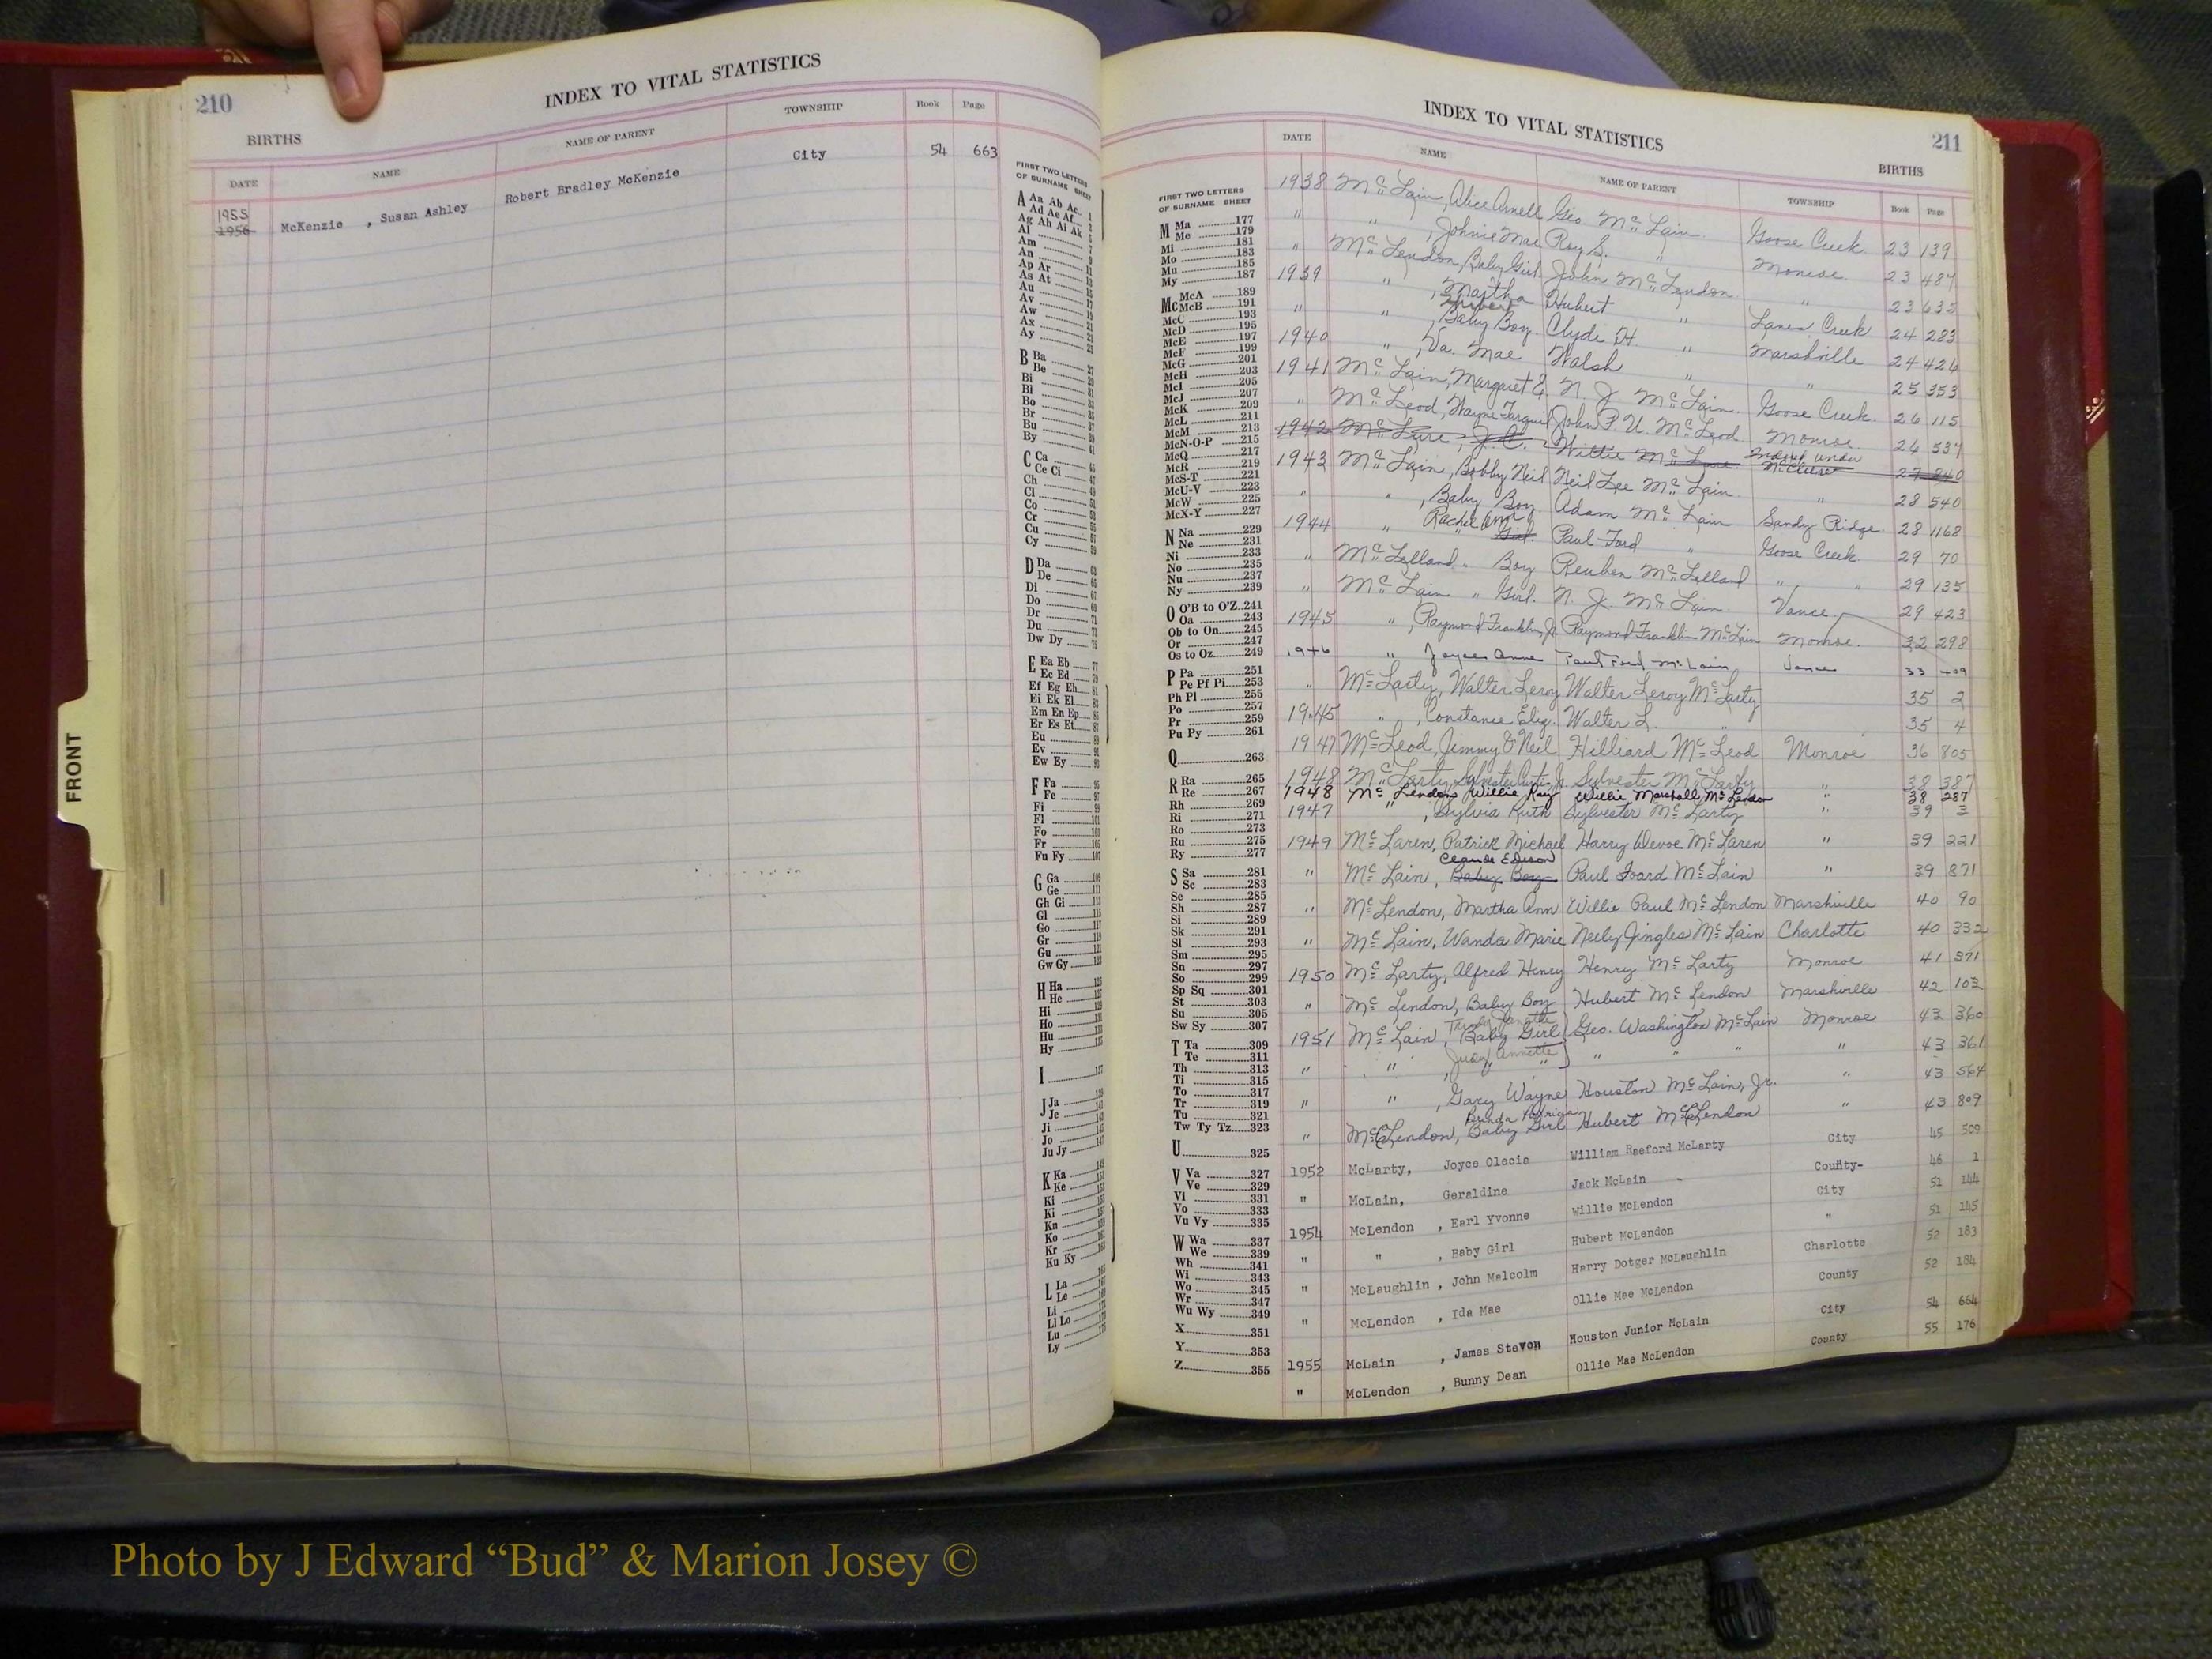 210
INDEX TO VITAL STATISTICS
BIRTHS
DATE NAME NAME OF PARENT TOWNSHIP Book Page
1955
1956 McKenzie , Susan Ashley Robert Bradley McKenzie City 54 663
FRONT
FIRST TWO LETTERS
OF SURNAME SHEET
A Aa Ab Ac
Ad Ae Af
Ag Ah Ai Ak
Al
Am
An
Ap Ar
As At
Au
Av
Aw
Ax
Ay
B Ba
Be
Bi
Bl
Bo
Br
Bu
By
C Ca
Ce Ci
Ch
Cl
Co
Cr
Cu
Cy
D Da
De
Di
Do
Dr
Du
Dw Dy
E Ea Eb
Ec Ed
Ef Eg Eh
Ei Ek El
Em En Ep
Er Es Et
Eu
Ev
Ew Ey
F Fa
Fe
Fi
Fl
Fo
Fr
Fu Fy
G Ga
Ge
Gh Gi
Gl
Go
Gr
Gu
Gw Gy
H Ha
He
Hi
Ho
Hu
Hy
I
J Ja
Je
Ji
Jo
Ju Jy
K Ka
Ke
Ki
Kl
Kn
Ko
Kr
Ku Ky
L La
Le
Li
Ll Lo
Lu
Ly
211
INDEX TO VITAL STATISTICS
BIRTHS
FIRST TWO LETTERS
OF SURNAME SHEET
M Ma 177
Me 179
Mi 181
Mo 183
Mu 185
My 187
Mc McA 189
McB 191
McC 193
McD 195
McE 197
McF 199
McG 201
McH 203
McI 205
McJ 207
McK 209
McL 211
McM 213
McN-O-P 215
McQ 217
McR 219
McS-T 221
McU-V 223
McW 225
McX-Y 227
N Na 229
Ne 231
Ni 233
No 235
Nu 237
Ny 239
O O'B to O'Z 241
Oa 243
Ob to On 245
Or 247
Os to Oz 249
P Pa 251
Pe Pf Pi 253
Ph Pl 255
Po 257
Pr 259
Pu Py 261
Q 263
R Ra 265
Re 267
Rh 269
Ri 271
Ro 273
Ru 275
Ry 277
S Sa 281
Sc 283
Se 285
Sh 287
Si 289
Sk 291
Sl 293
Sm 295
Sn 297
So 299
Sp Sq 301
St 303
Su 305
Sw Sy 307
T Ta 309
Te 311
Th 313
Ti 315
To 317
Tr 319
Tu 321
Tw Ty Tz 323
U 325
V Va 327
Ve 329
Vi 331
Vo 333
Vu Vy 335
W Wa 337
We 339
Wh 341
Wi 343
Wo 345
Wr 347
Wu Wy 349
X 351
Y 353
Z 355
DATE NAME NAME OF PARENT TOWNSHIP Book Page
1938 McLain, Alice Arnell Geo McLain Goose Creek 23 139
" " , Johnie Mae Roy S. " Monroe 23 487
" McLendon, Baby Girl John McLendon " 23 635
1939 " , Martha Hubert " Lanes Creek 24 283
" " Baby Boy Clyde H. " Marshville 24 426
1940 " , Va. Mae Walsh " " 25 353
1941 McLain, Margaret E. N. J. McLain Goose Creek 26 115
" McLeod, Wayne John P. U. McLeod Monroe 26 537
1942 McLure, J.C. Willie McLure Indexed under McClure 27 240
1943 McLain, Bobby Neil Neil Lee McLain " 28 540
" " , Baby Boy Adam McLain Sandy Ridge 28 1168
1944 " Rachel Ann Girl Paul Ford " Goose Creek 29 70
" McLelland " Boy Reuben McLelland " " 29 135
" McLain " Girl N. J. McLain Vance 29 423
1945 " , Raymond Franklin, Jr. Raymond Franklin McLain Monroe 32 298
1946 " Joyce Anne Paul Ford McLain Vance 33 409
" McLarty, Walter Leroy Walter Leroy McLarty 35 2
1945 " , Constance Eliz. Walter L. " 35 4
1947 McLeod, Jimmy O'Neil Hilliard McLeod Monroe 36 805
1948 McLarty, Sylvester Curtis Jr. Sylvester McLarty " 38 387
1948 McLendon, Willie Ray Willie Marshall McLendon " 38 287
1947 " , Sylvia Ruth Sylvester McLarty " 39 3
1949 McLaren, Patrick Michael Harry Devoe McLaren " 39 221
" McLain, Claude Edison Baby Boy Paul Foard McLain " 39 871
" McLendon, Martha Ann Willie Paul McLendon Marshville 40 90
" McLain, Wanda Marie Neely Jingles McLain Charlotte 40 332
1950 McLarty, Alfred Henry Henry McLarty Monroe 41 371
" McLendon, Baby Boy Hubert McLendon Marshville 42 103
1951 McLain, Baby Girl Geo. Washington McLain Monroe 43 360
" " , Judy Annette " " " " 43 361
" " , Gary Wayne Houston McLain, Jr. " 43 564
" McClendon, Brenda Patricia Baby Girl Hubert McClendon " 43 809
1952 McLarty, Joyce Olecia William Raeford McLarty City 45 509
" McLain, Geraldine Jack McLain County- 46 1
1954 McLendon , Earl Yvonne Willie McLendon City 51 144
" " , Baby Girl Hubert McLendon " 51 145
" McLaughlin , John Malcolm Harry Dotger McLaughlin Charlotte 52 183
" McLendon , Ida Mae Ollie Mae McLendon County 52 184
1955 McLain , James Stevon Houston Junior McLain City 54 664
" McLendon , Bunny Dean Ollie Mae McLendon County 55 176
Photo by J Edward “Bud” & Marion Josey ©